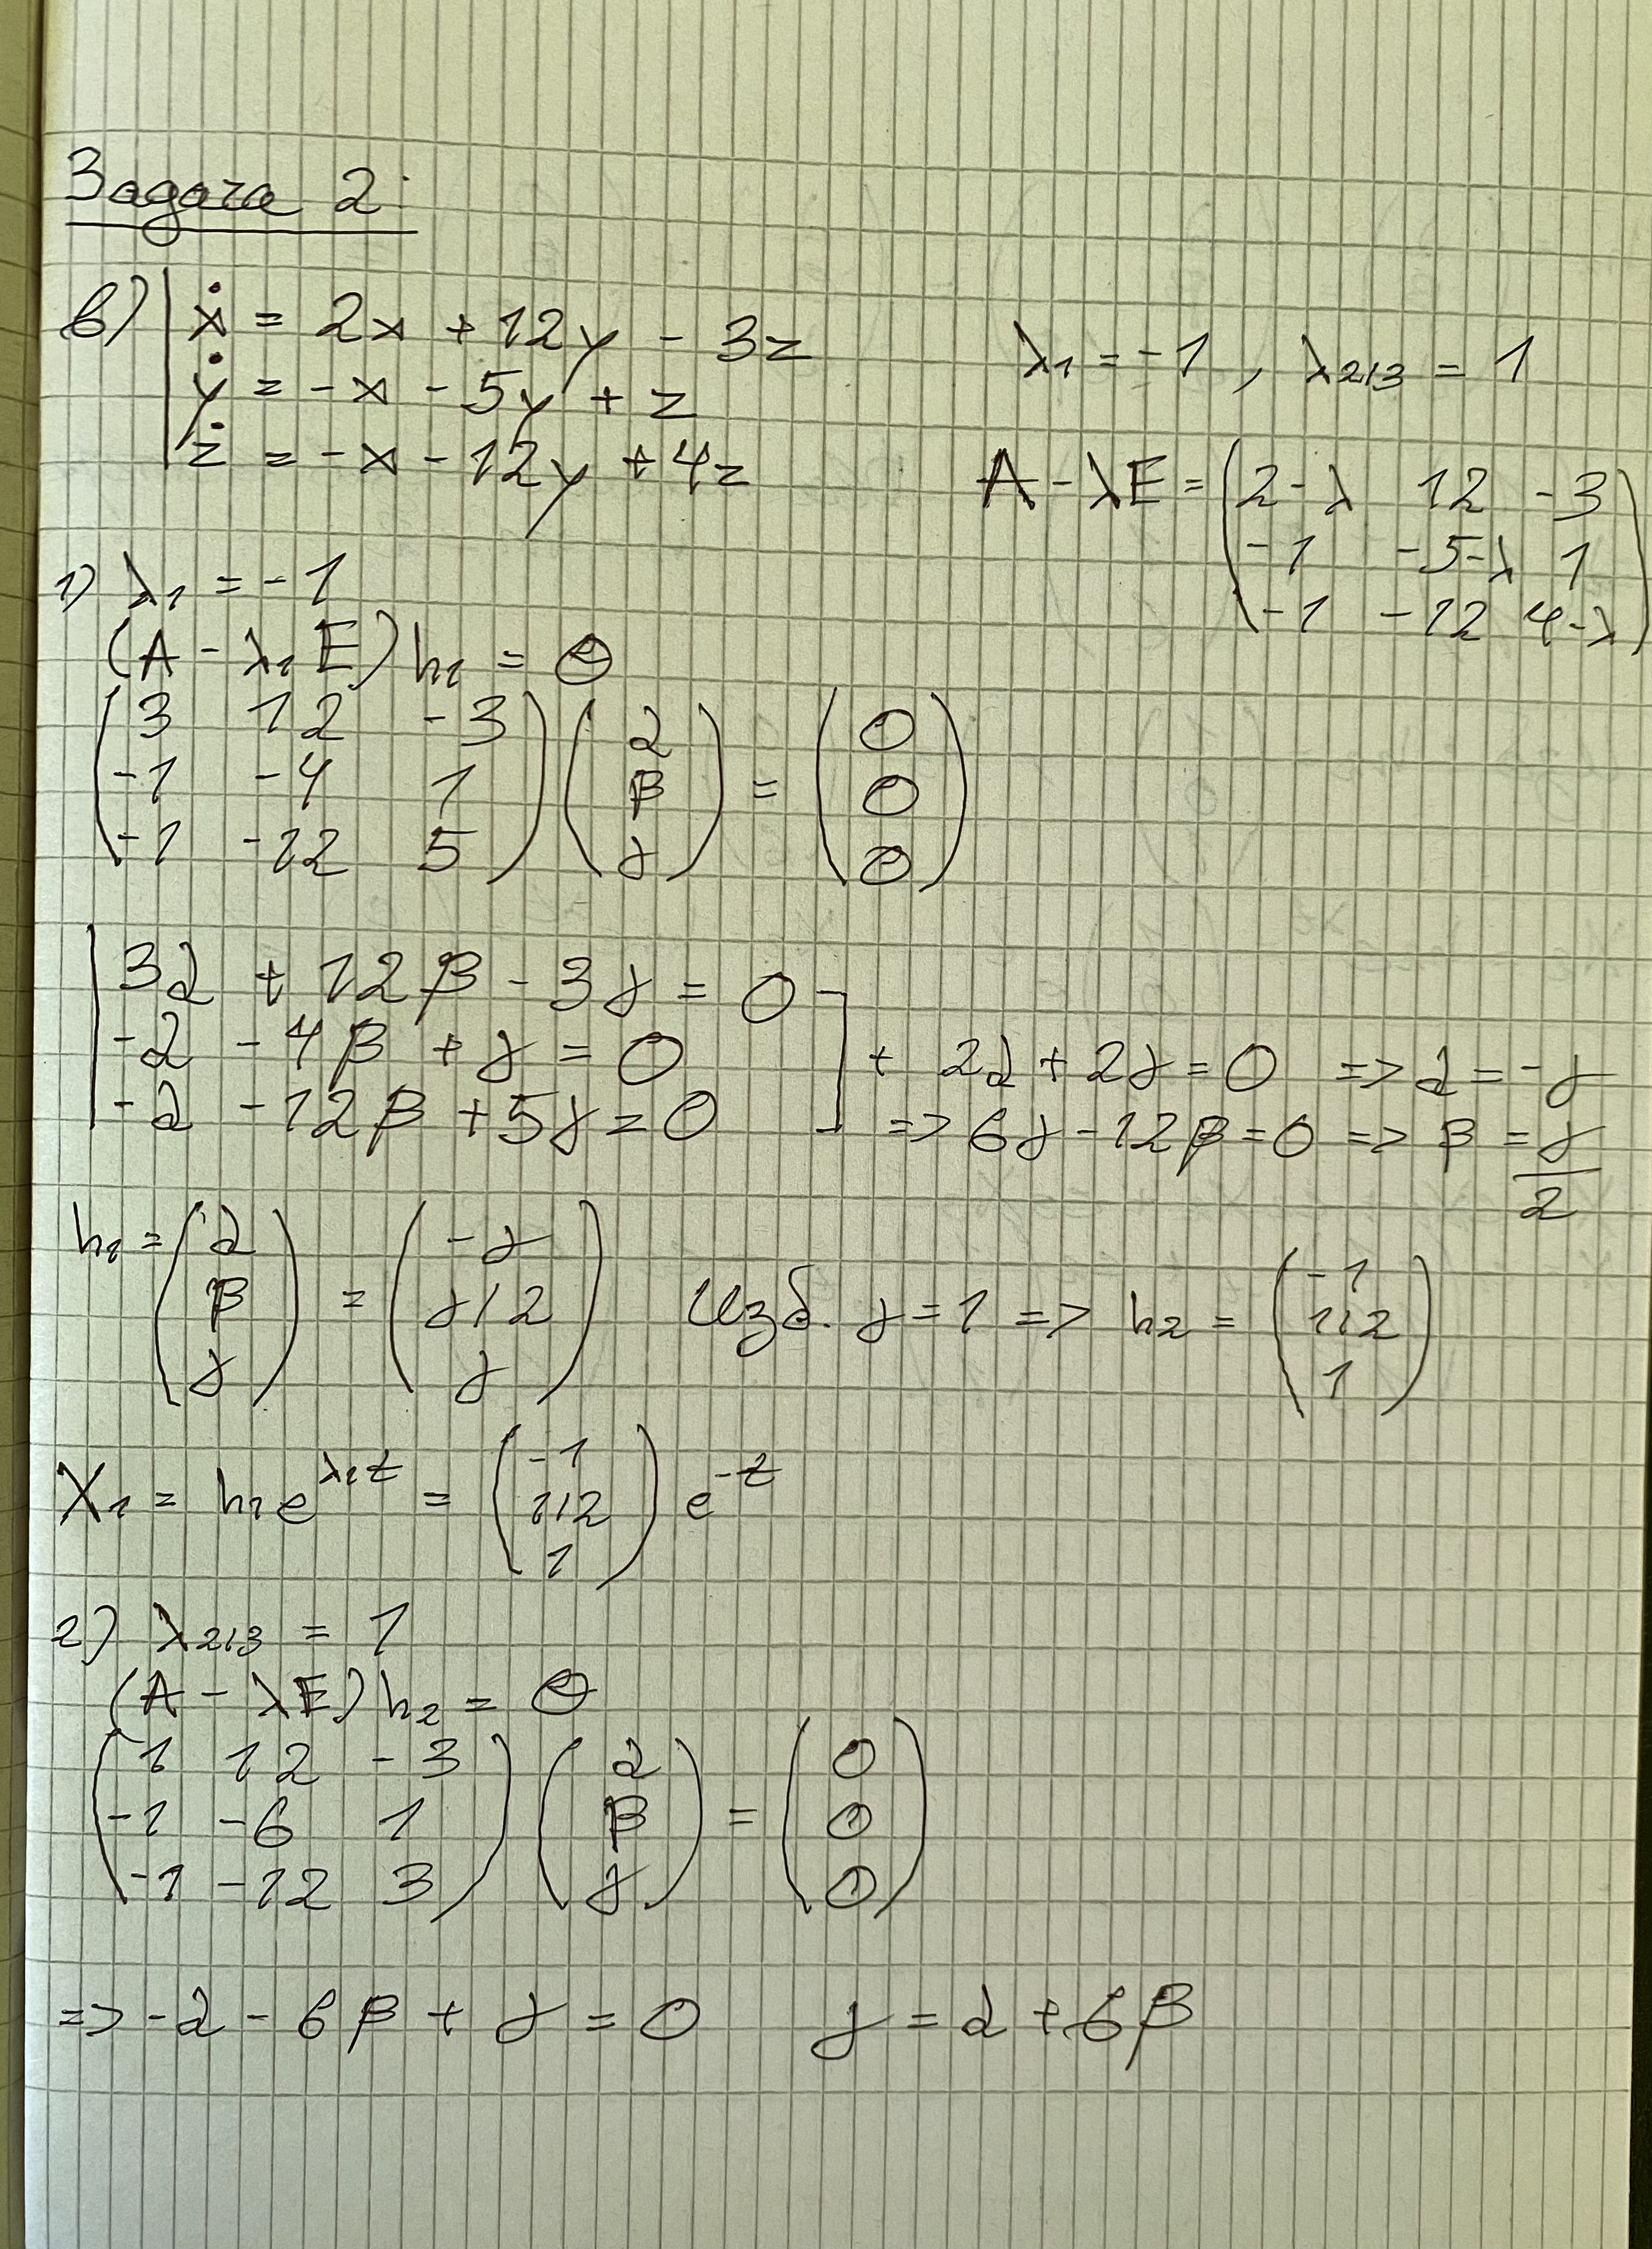 Задача 2:
в) | ẋ = 2x + 12y - 3z
ẏ = -x - 5y + z
ż = -x - 12y + 4z
λ1 = -1 , λ2,3 = 1
A - λE = (2-λ 12 -3
-1 -5-λ 1
-1 -12 4-λ)
1) λ1 = -1
(A - λ1E)h1 = Θ
(3 12 -3
-1 -4 1
-1 -12 5) (α
β
γ) = (0
0
0)
| 3α + 12β - 3γ = 0
-α - 4β + γ = 0
-α - 12β + 5γ = 0
+ 2α + 2γ = 0 => α = -γ
=> 6γ - 12β = 0 => β = γ/2
h1 = (α
β
γ) = (-γ
γ/2
γ) Изб. γ = 1 => h2 = (-1
1/2
1)
X1 = h1e^λ1t = (-1
1/2
1) e^-t
2) λ2,3 = 1
(A - λE)h2 = Θ
(1 12 -3
-1 -6 1
-1 -12 3) (α
β
γ) = (0
0
0)
=> -α - 6β + γ = 0 γ = α + 6β